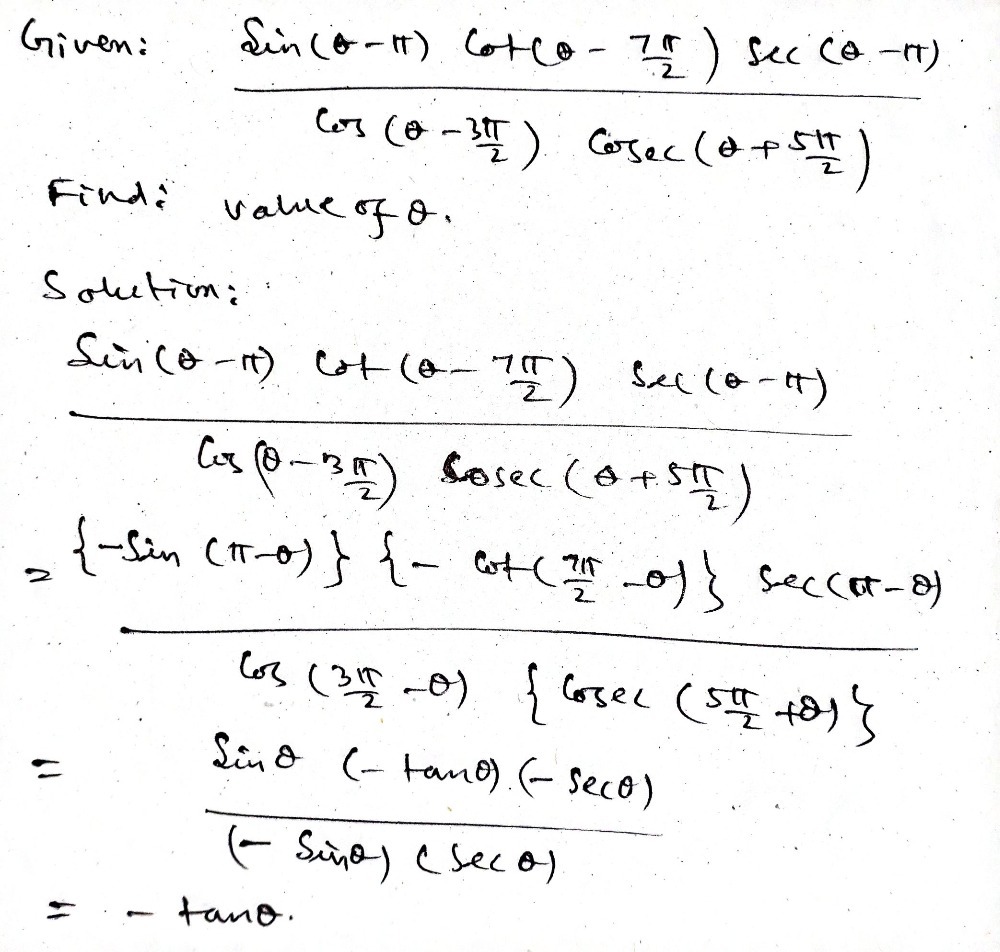 Given: Sin(θ-π) Cot(θ - 7π/2) Sec(θ-π)
Cos(θ - 3π/2) Cosec(θ + 5π/2)
Find: value of θ.
Solution:
Sin(θ-π) Cot(θ - 7π/2) Sec(θ-π)
Cos(θ - 3π/2) Cosec(θ + 5π/2)
= {-Sin(π-θ)} {- Cot(7π/2 - θ)} Sec(π-θ)
Cos(3π/2 - θ) {Cosec(5π/2 + θ)}
= Sinθ (- tanθ) (- Secθ)
(- Sinθ) (Secθ)
= - tanθ.